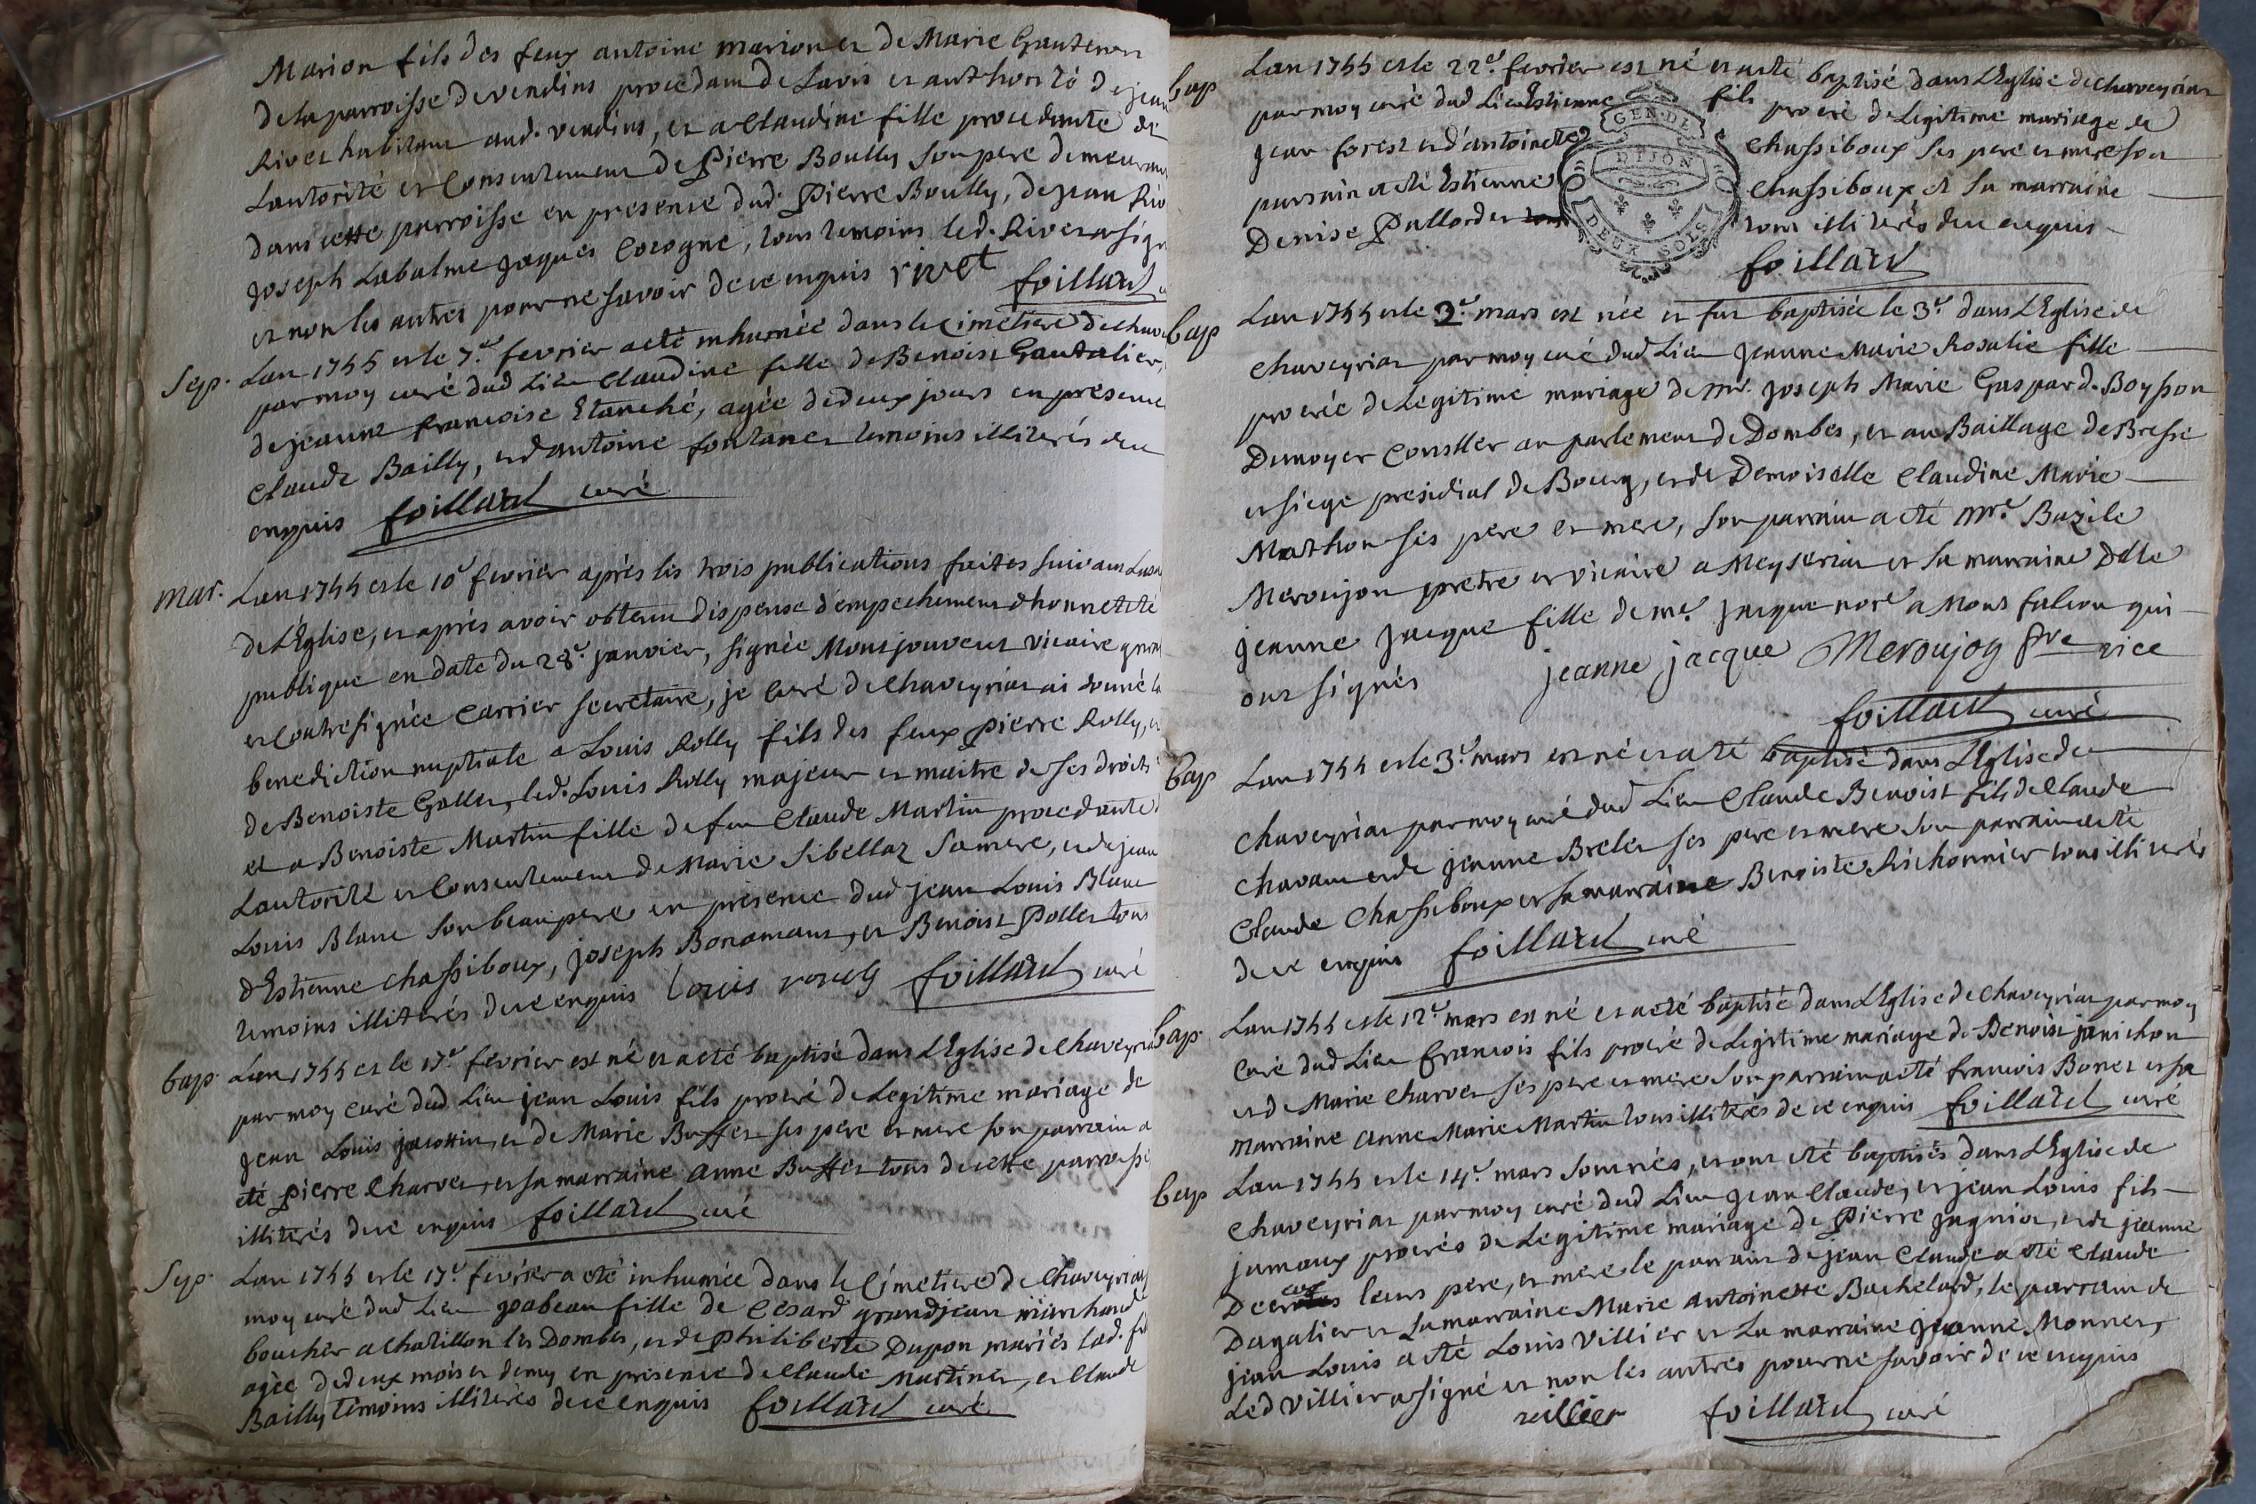 Marion fils des feux antoine marion et de Marie Gauteron
de la parroisse de vendins procedant de Lavis et authorité de jean
Rivet habitant aud. vendins, et a Claudine fille procedante de
Lautorité et Consentement de Pierre Boully son pere demeurant
dans cette parroisse en presence dud. Pierre Boully, de jean Riv
joseph Labalme jaques Cocogne, tous temoins led. Rivet a sign
et non les autres pour ne savoir de ce enquis rivet foillard
Sep. Lan 1755 et le 7.e fevrier a eté inhumée dans le Cimetiere de chav
par moy curé dud Lieu Claudine fille de Benoist Gautalier,
de jeanne francoise Etanché, agée de deux jours en presence
Claude Bailly, et d'antoine fontanet temoins illiterés de ce
enquis foillard curé
mar. Lan 1755 et le 10e fevrier après les trois publications faites suivant Lusa
de L'Eglise, et après avoir obtenu dispense d'empechement d'honneteté
publique en date du 28.e janvier, signée Montjouvent vicaire general
et Contresignée Carrier secretaire, je Curé de Chaveyriat ai donné la
benediction nuptiale a Louis Rolly fils des feux Pierre Rolly, et
de Benoiste Gallet, led. Louis Rolly majeur et maitre de ses droits
et a Benoiste Martin fille de feu Claude Martin procedante
Lautorité et Consentement de Marie Sibellaz sa mere, et de jean
Louis Blanc son beau pere en presence dud jean Louis Blanc
d'Estienne Chassiboux, joseph Bonamant, et Benoist Pollet tous
temoins illiterés de ce enquis Louis rouly foillard curé
bap. Lan 1755 et le 17.e fevrier est né et a eté baptisé dans L'Eglise de Chaveyria
par moy Curé dud Lieu jean Louis fils procré de Legitime mariage de
jean Louis jacottin, et de Marie Buffet ses pere et mere son parrain a
eté Pierre Charvet, et sa marraine anne Buffet tous de cette parroisse
illiterés de ce enquis foillard curé
Sep. Lan 1755 et le 17.e fevrier a eté inhumée dans le Cimetiere de Chaveyriat
moy curé dud Lieu ysabeau fille de Cesard grandjean marchand
boucher a Chatillon les Dombes, et de Philiberte Dupon mariés lad. fi
agée de deux mois et demy en presence de Claude Martinet, et Claude
Bailly temoins illiterés de ce enquis foillard curé
bap Lan 1755 et le 22.e fevrier est né et a eté baptisé dans L'Eglise de Chaveyriat
par moy curé dud Lieu Estienne fils procré de Legitime mariage de
jean forest et d'antoinette Chassiboux ses pere et mere son
parrain a eté Estienne Chassiboux et sa marraine
Denise Pallordet tous illiterés de ce enquis
GEN. DE DIJON DEUX SOLS
foillard
bap Lan 1755 et le 2.e mars est née et fut baptisée le 3.e dans L'Eglise de
Chaveyriat par moy curé dud Lieu jeanne Marie Rosalie fille
procrée de Legitime mariage de Mr. joseph Marie Gaspard Boysson
Dunoyer Conseller au parlement de Dombes, et au Baillage de Bresse
et siege presidial de Bourg, et de Demoiselle Claudine Marie
Mathon ses pere et mere, son parrain a eté Mre. Bazile
Meroujon pretre et vicaire a Meyseriat et sa marraine Delle
jeanne jacque fille de me. jacque nore a Mont falcon qui
ont signés jeanne jacque Meroujon ptre vice
foillard curé
bap Lan 1755 et le 3.e mars est né et a eté baptisé dans L'Eglise de
Chaveyriat par moy curé dud Lieu Claude Benoist fils de Claude
Chavant et de jeanne Brelet ses pere et mere son parrain a eté
Claude Chassiboux et sa marraine Benoiste Richonnier tous illiterés
de ce enquis foillard curé
bap. Lan 1755 et le 12.e mars est né et a eté baptisé dans L'Eglise de Chaveyriat par moy
Curé dud Lieu francois fils procré de Legitime mariage de Benoist janichon
et de Marie Charvet ses pere et mere son parrain a eté francois Bonet et sa
marraine anne Marie Martin tous illiterés de ce enquis foillard curé
bap Lan 1755 et le 14.e mars sont nés, et ont eté baptisés dans L'Eglise de
Chaveyriat par moy curé dud Lieu jean Claude, et jean Louis fils
jumaux procrés de Legitime mariage de Pierre jugnion, et de jeanne
leurs pere, et mere le parrain de jean Claude a eté Claude
Dagalier et La marraine Marie antoinette Bachelard, le parrain de
jean Louis a eté Louis Villier et La marraine jeanne Monnet,
Led Villier a signé et non les autres pour ne savoir de ce enquis
villier foillard curé